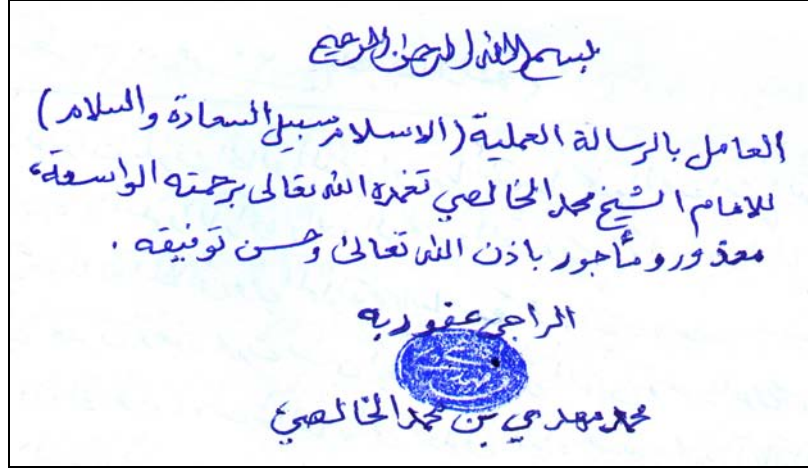 بسم الله الرحمن الرحيم
العامل بالرسالة العملية (الاسلام سبيل السعادة والسلام)
للامام الشيخ محمد الخالصي تغمده الله تعالى برحمته الواسعة،
معذور ومأجور باذن الله تعالى وحسن توفيقه .
الراجي عفو ربه
محمد مهدي بن محمد الخالصي